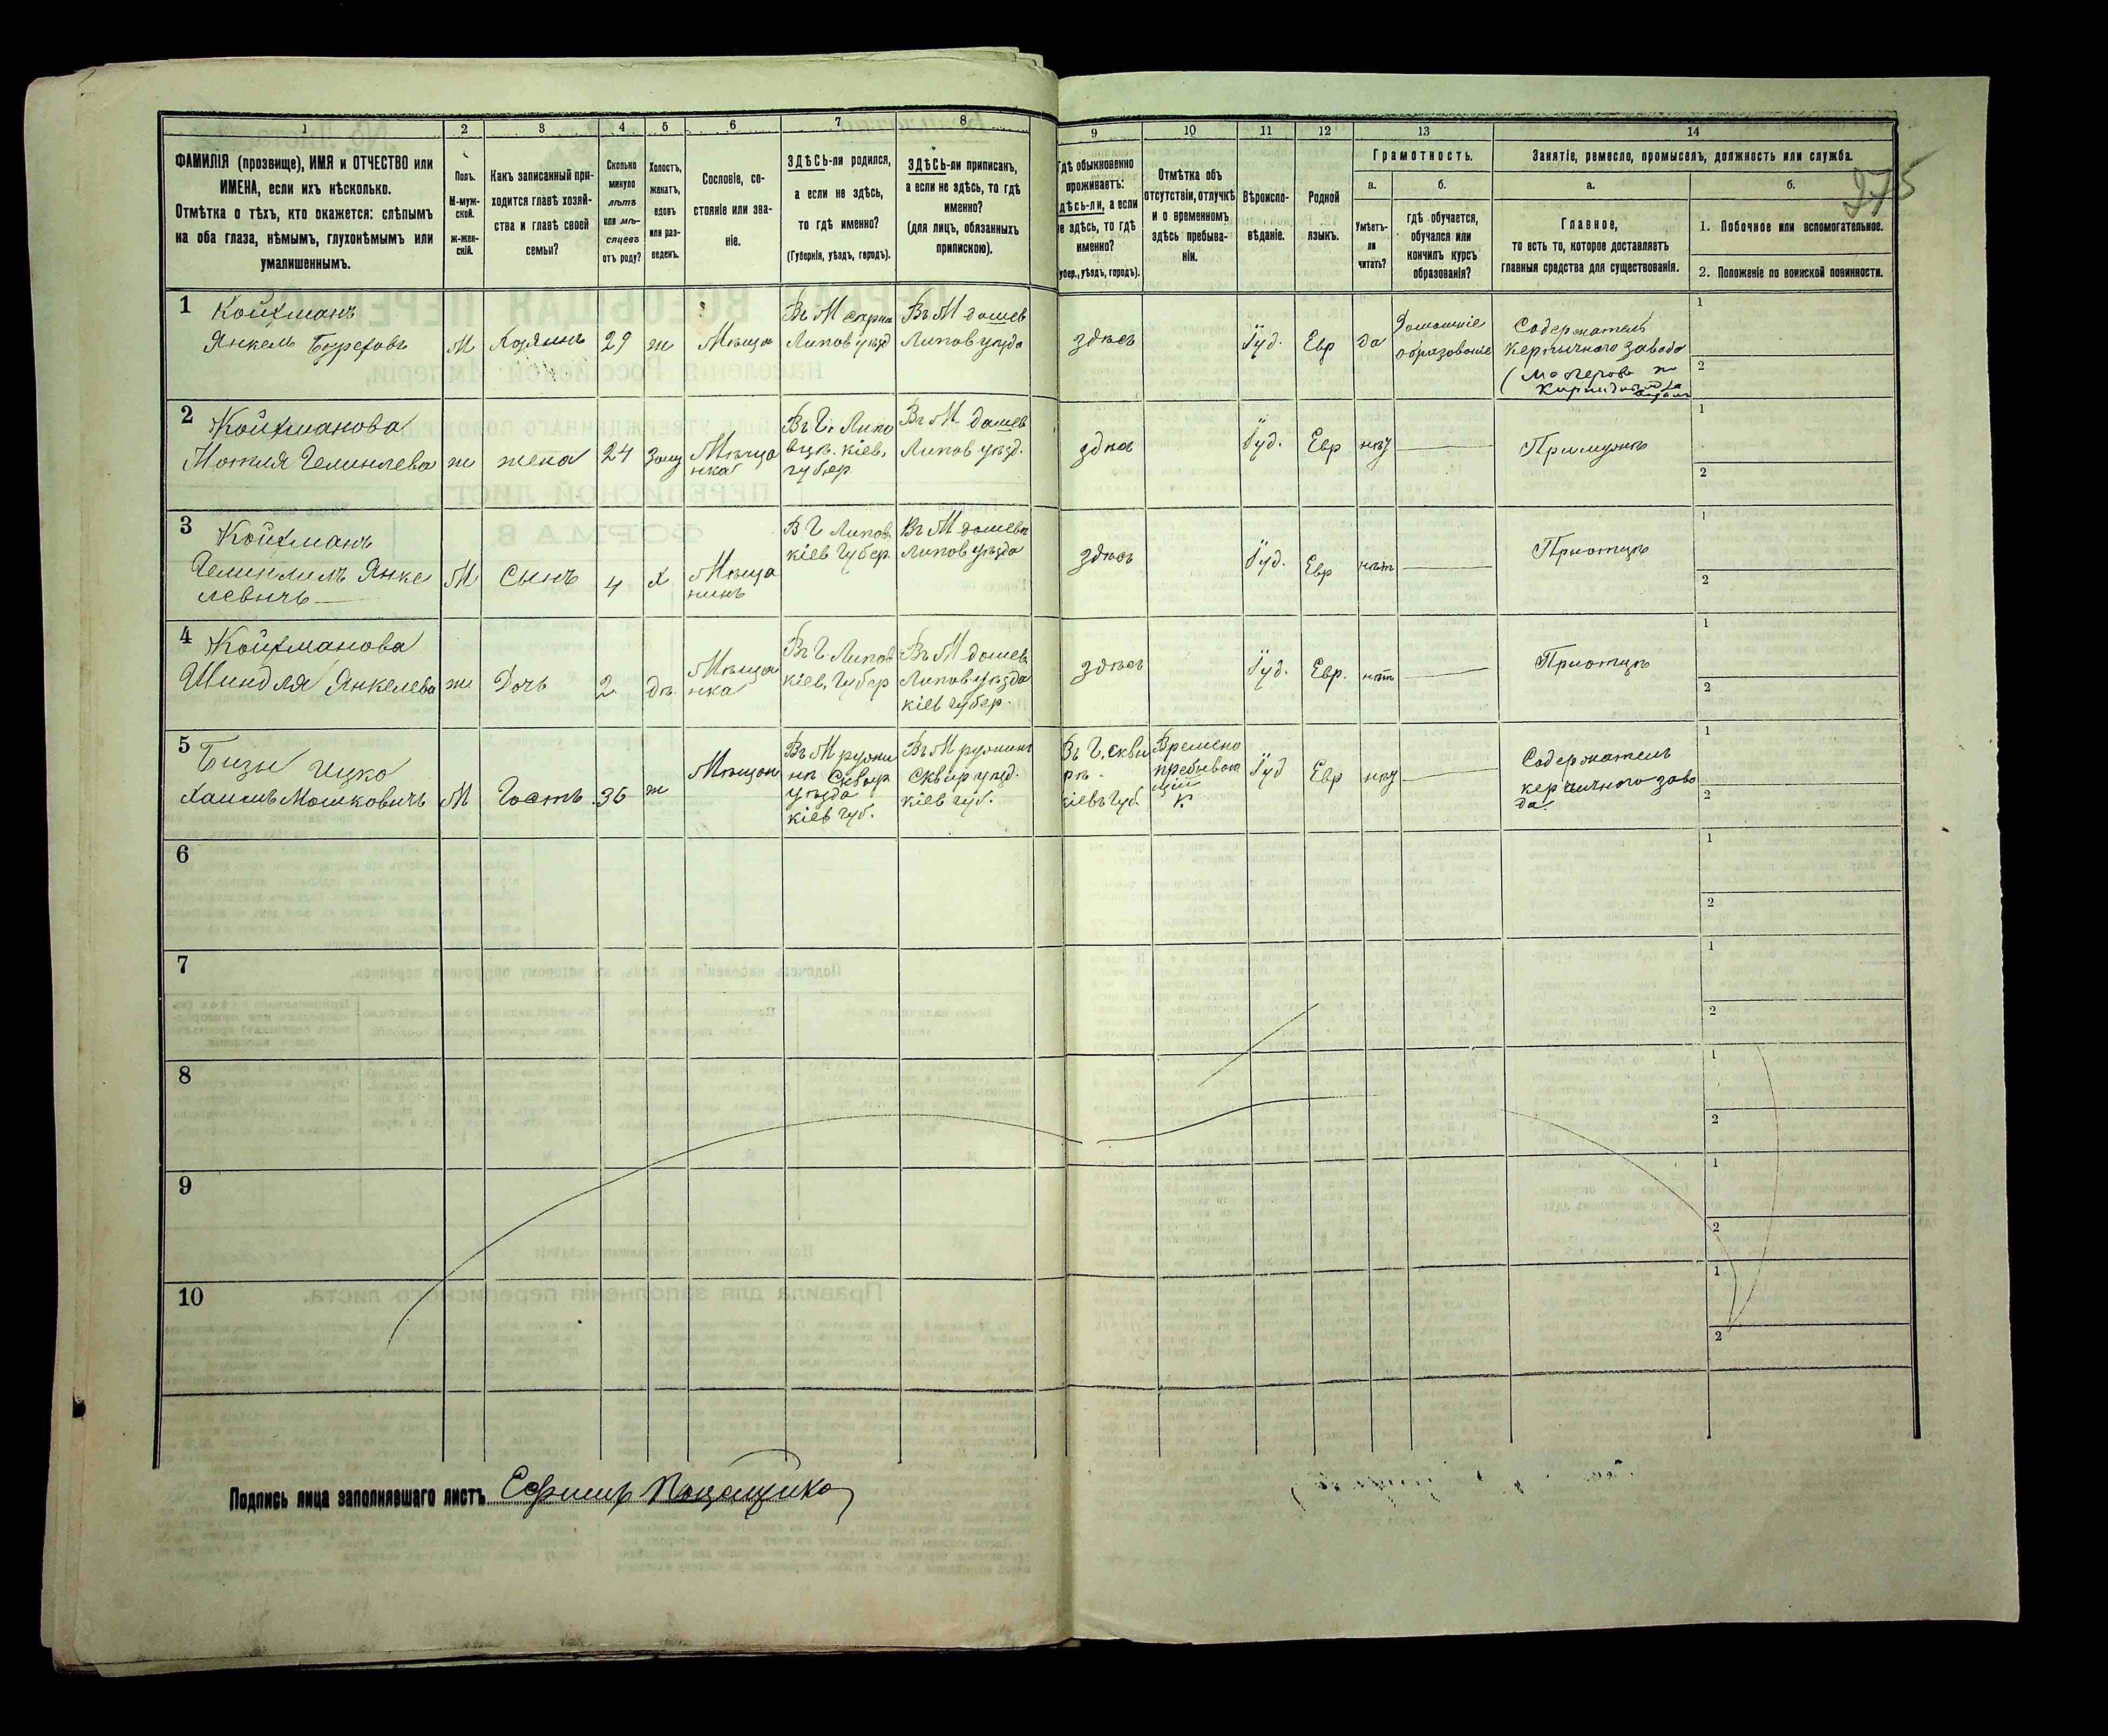 1 2 3 4 5 6 7 8 9 10 11 12 13 14
ФАМИЛІЯ (прозвище), ИМЯ и ОТЧЕСТВО или
ИМЕНА, если ихъ нѣсколько.
Отмѣтка о тѣхъ, кто окажется: слѣпымъ
на оба глаза, нѣмымъ, глухонѣмымъ или
умалишеннымъ.
Полъ.
М-муж-
ской.
ж-жен-
скій.
Какъ записанный при-
ходится главѣ хозяй-
ства и главѣ своей
семьи?
Сколько
минуло
лѣтъ
или мѣ-
сяцевъ
отъ роду?
Холостъ,
женатъ,
вдовъ
или раз-
веденъ.
Сословіе, со-
стояніе или зва-
ніе.
ЗДѢСЬ-ли родился,
а если не здѣсь,
то гдѣ именно?
(Губернія, уѣздъ, городъ).
ЗДѢСЬ-ли приписанъ,
а если не здѣсь, то гдѣ
именно?
(для лицъ, обязанныхъ
припискою).
Гдѣ обыкновенно
проживаетъ:
здѣсь-ли, а если
не здѣсь, то гдѣ
именно?
(губер., уѣздъ, городъ).
Отмѣтка объ
отсутствіи, отлучкѣ
и о временномъ
здѣсь пребыва-
ніи.
Вѣроиспо-
вѣданіе.
Родной
языкъ.
Грамотность.
а.
Умѣетъ-
ли
читать?
б.
гдѣ обучается,
обучался или
кончилъ курсъ
образованія?
Занятіе, ремесло, промыселъ, должность или служба.
а.
Главное,
то есть то, которое доставляетъ
главныя средства для существованія.
б.
1. Побочное или вспомогательное.
2. Положеніе по воинской повинности.
275
1 Койхманъ
Янкель
М
Хозяинъ
29
ж
Мѣща
Въ М
Липов уѣзд
Въ М дашев
Липов уѣзда
здѣсь
Іуд.
Евр
да
Домашніе
образованіе
Содержатель
керпичного завода
1
2
2 Койхманова
ж
жена
24
Зам
Мѣща
нка
Въ Г. Липо
вцѣ. кіев,
губер.
Въ М дашев
Липов уѣзд.
здѣсь
Іуд.
Евр
нѣт
Примужѣ
1
2
3 Койхманъ
Янке
левичъ
М
Сынъ
4
Х
Мѣща
нинъ
В Г Липов.
кіев Губер.
Въ М дашевѣ
Липов уѣзда
здѣсь
Іуд.
Евр
нѣт
Приотцѣ
1
2
4 Койхманова
Шиндля Янкелева
ж
Дочь
2
дѣ
Мѣща
нка
Въ Г Липов
кіев, Губер
Въ М дашев
Липов уѣзда
кіев губер.
здѣсь
Іуд.
Евр.
нѣт
Приотцѣ
1
2
5
Ицко
Хаимъ Мошковичъ
М
Гость
36
ж
Мѣщан
Въ М ружи
нѣ Сквир
уѣзда
кіев Губ.
Въ М ружинѣ
Сквир уѣзд.
кіев губ.
Въ Г. Скви
рѣ.
кіевъ Губ.
Времено
пребывающ
щій
Іуд
Евр
нѣт
Содержатель
керпичного заво
да
1
2
6
1
2
7
1
2
8
1
2
9
1
2
10
1
2
Подпись лица заполнявшаго листъ